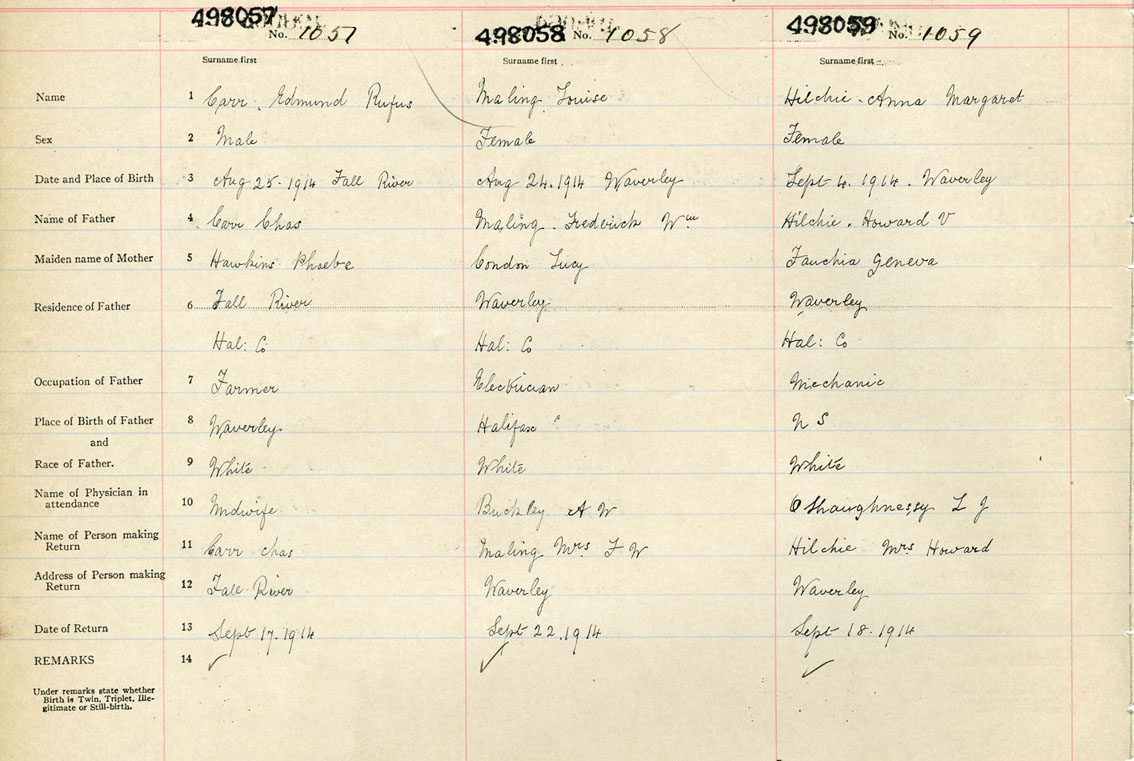 498057 498058 498059
No. 1057 No. 1058 No. 1059
Surname first Surname first Surname first
Name 1 Carr, Edmund Rufus Maling Louise Hilchie, Anna Margaret
Sex 2 Male Female Female
Date and Place of Birth 3 Aug 25-1914 Fall River Aug 24.1914 Waverley Sept 4. 1914. Waverley
Name of Father 4 Carr Chas Maling. Frederick Wm Hilchie. Howard V
Maiden name of Mother 5 Hawkins Phoebe Condon Lucy Geneva
Residence of Father 6 Fall River Waverley Waverley
Hal: Co Hal: Co Hal: Co
Occupation of Father 7 Farmer Electrician Mechanic
Place of Birth of Father 8 Waverley Halifax N S
and
Race of Father. 9 White White White
Name of Physician in
attendance 10 Midwife Buckley A W O'Shaughnessy L J
Name of Person making
Return 11 Carr Chas Maling Mrs F W Hilchie Mrs Howard
Address of Person making
Return 12 Fall River Waverley Waverley
Date of Return 13 Sept 17.1914 Sept 22.1914 Sept 18-1914
REMARKS 14 ✓ ✓ ✓
Under remarks state whether
Birth is Twin, Triplet, Ille-
gitimate or Still-birth.